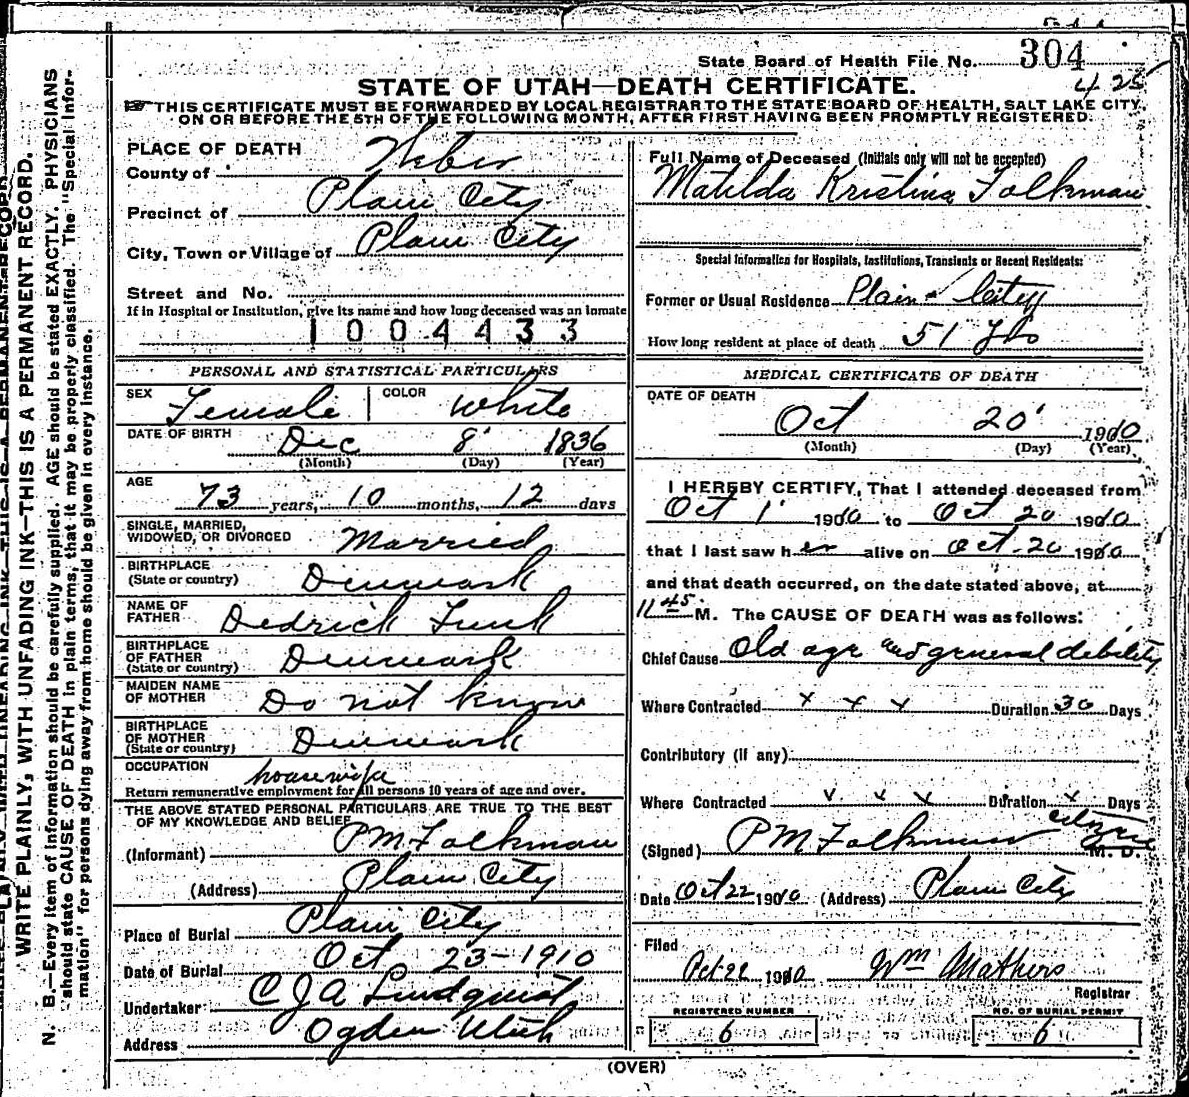 State Board of Health File No. 304
425
STATE OF UTAH—DEATH CERTIFICATE.
THIS CERTIFICATE MUST BE FORWARDED BY LOCAL REGISTRAR TO THE STATE BOARD OF HEALTH, SALT LAKE CITY,
ON OR BEFORE THE 5TH OF THE FOLLOWING MONTH, AFTER FIRST HAVING BEEN PROMPTLY REGISTERED.
PLACE OF DEATH
County of Weber
Precinct of Plain City
City, Town or Village of Plain City
Street and No.
If in Hospital or Insitution, give its name and how long deceased was an inmate
1004433
PERSONAL AND STATISTICAL PARTICULARS
SEX Female COLOR White
DATE OF BIRTH Dec 8 1836
(Month) (Day) (Year)
AGE
73 years, 10 months, 12 days
SINGLE, MARRIED,
WIDOWED, OR DIVORCED Married
BIRTHPLACE
(State or country) Denmark
NAME OF
FATHER Dedrick Funk
BIRTHPLACE
OF FATHER Denmark
(State or country)
MAIDEN NAME
OF MOTHER Do not know
BIRTHPLACE
OF MOTHER Denmark
(State or country)
OCCUPATION housewife
Return remunerative employment for all persons 10 years of age and over.
THE ABOVE STATED PERSONAL PARTICULARS ARE TRUE TO THE BEST
OF MY KNOWLEDGE AND BELIEF
(Informant) P M Folkman
(Address) Plain City
Place of Burial Plain City
Date of Burial Oct 23-1910
Undertaker C J A Lindquist
Address Ogden Utah
Full Name of Deceased (Initials only will not be accepted)
Matilda Kristina Folkman
Special Information for Hospitals, Institutions, Transients or Recent Residents:
Former or Usual Residence Plain City
How long resident at place of death 51 yrs
MEDICAL CERTIFICATE OF DEATH
DATE OF DEATH
Oct 20 1910
(Month) (Day) (Year)
I HEREBY CERTIFY, That I attended deceased from
Oct 1 1910 to Oct 20 1910
that I last saw her alive on Oct. 20 1910
and that death occurred, on the date stated above, at
11 45 M. The CAUSE OF DEATH was as follows:
Chief Cause Old age and general debility
Where Contracted x x x Duration 30 Days
Contributory (if any)
Where Contracted x x x Duration x Days
(Signed) P M Folkman M. D.
Date Oct 22 1910 (Address) Plain City
Filed
Oct 22 1910 Wm Mathers
Registrar
REGISTERED NUMBER
6
NO. OF BURIAL PERMIT
6
(OVER)
WRITE PLAINLY, WITH UNFADING INK—THIS IS A PERMANENT RECORD.
N. B.—Every item of information should be carefully supplied. AGE should be stated EXACTLY. PHYSICIANS
should state CAUSE OF DEATH in plain terms, that it may be properly classified. The "Special Infor-
mation" for persons dying away from home should be given in every instance.